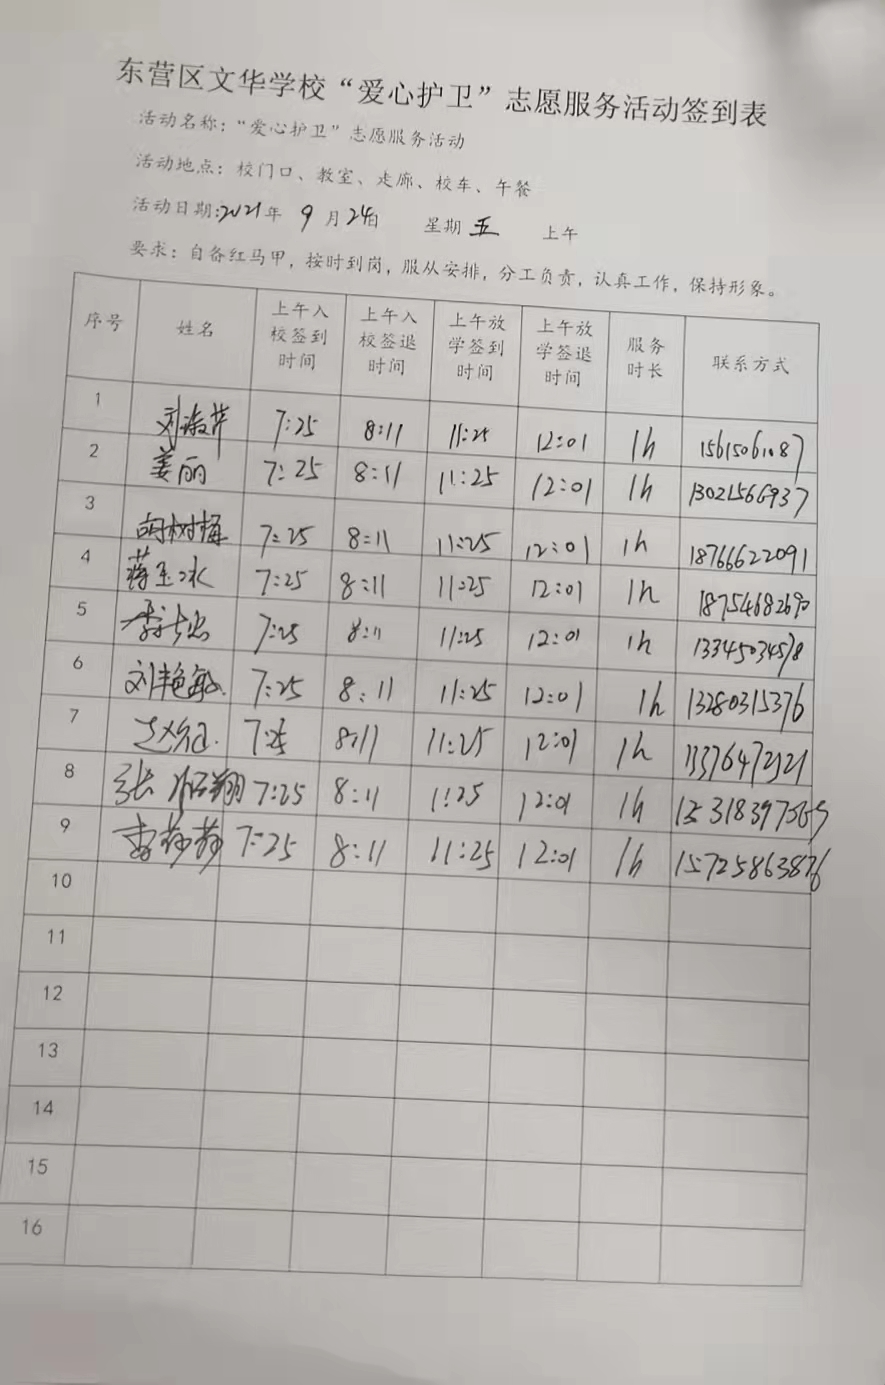 东营区文华学校“爱心护卫”志愿服务活动签到表
活动名称：“爱心护卫”志愿服务活动
活动地点：校门口、教室、走廊、校车、午餐
活动日期:2021年 9月24日 星期五 上午
要求：自备红马甲，按时到岗，服从安排，分工负责，认真工作，保持形象。
序号 姓名 上午入校签到时间 上午入校签退时间 上午放学签到时间 上午放学签退时间 服务时长 联系方式
1 刘淑芹 7:25 8:11 11:25 12:01 1h 15615061087
2 姜丽 7:25 8:11 11:25 12:01 1h 13021566937
3 胡树梅 7:25 8:11 11:25 12:01 1h 18766622091
4 蒋玉冰 7:25 8:11 11:25 12:01 1h 18754682690
5 7:25 8:11 11:25 12:01 1h 13345034578
6 刘艳敏 7:25 8:11 11:25 12:01 1h 13280315376
7 7:25 8:11 11:25 12:01 1h
8 张 翔 7:25 8:11 11:25 12:01 1h
9 李莎莎 7:25 8:11 11:25 12:01 1h 15725863876
10
11
12
13
14
15
16